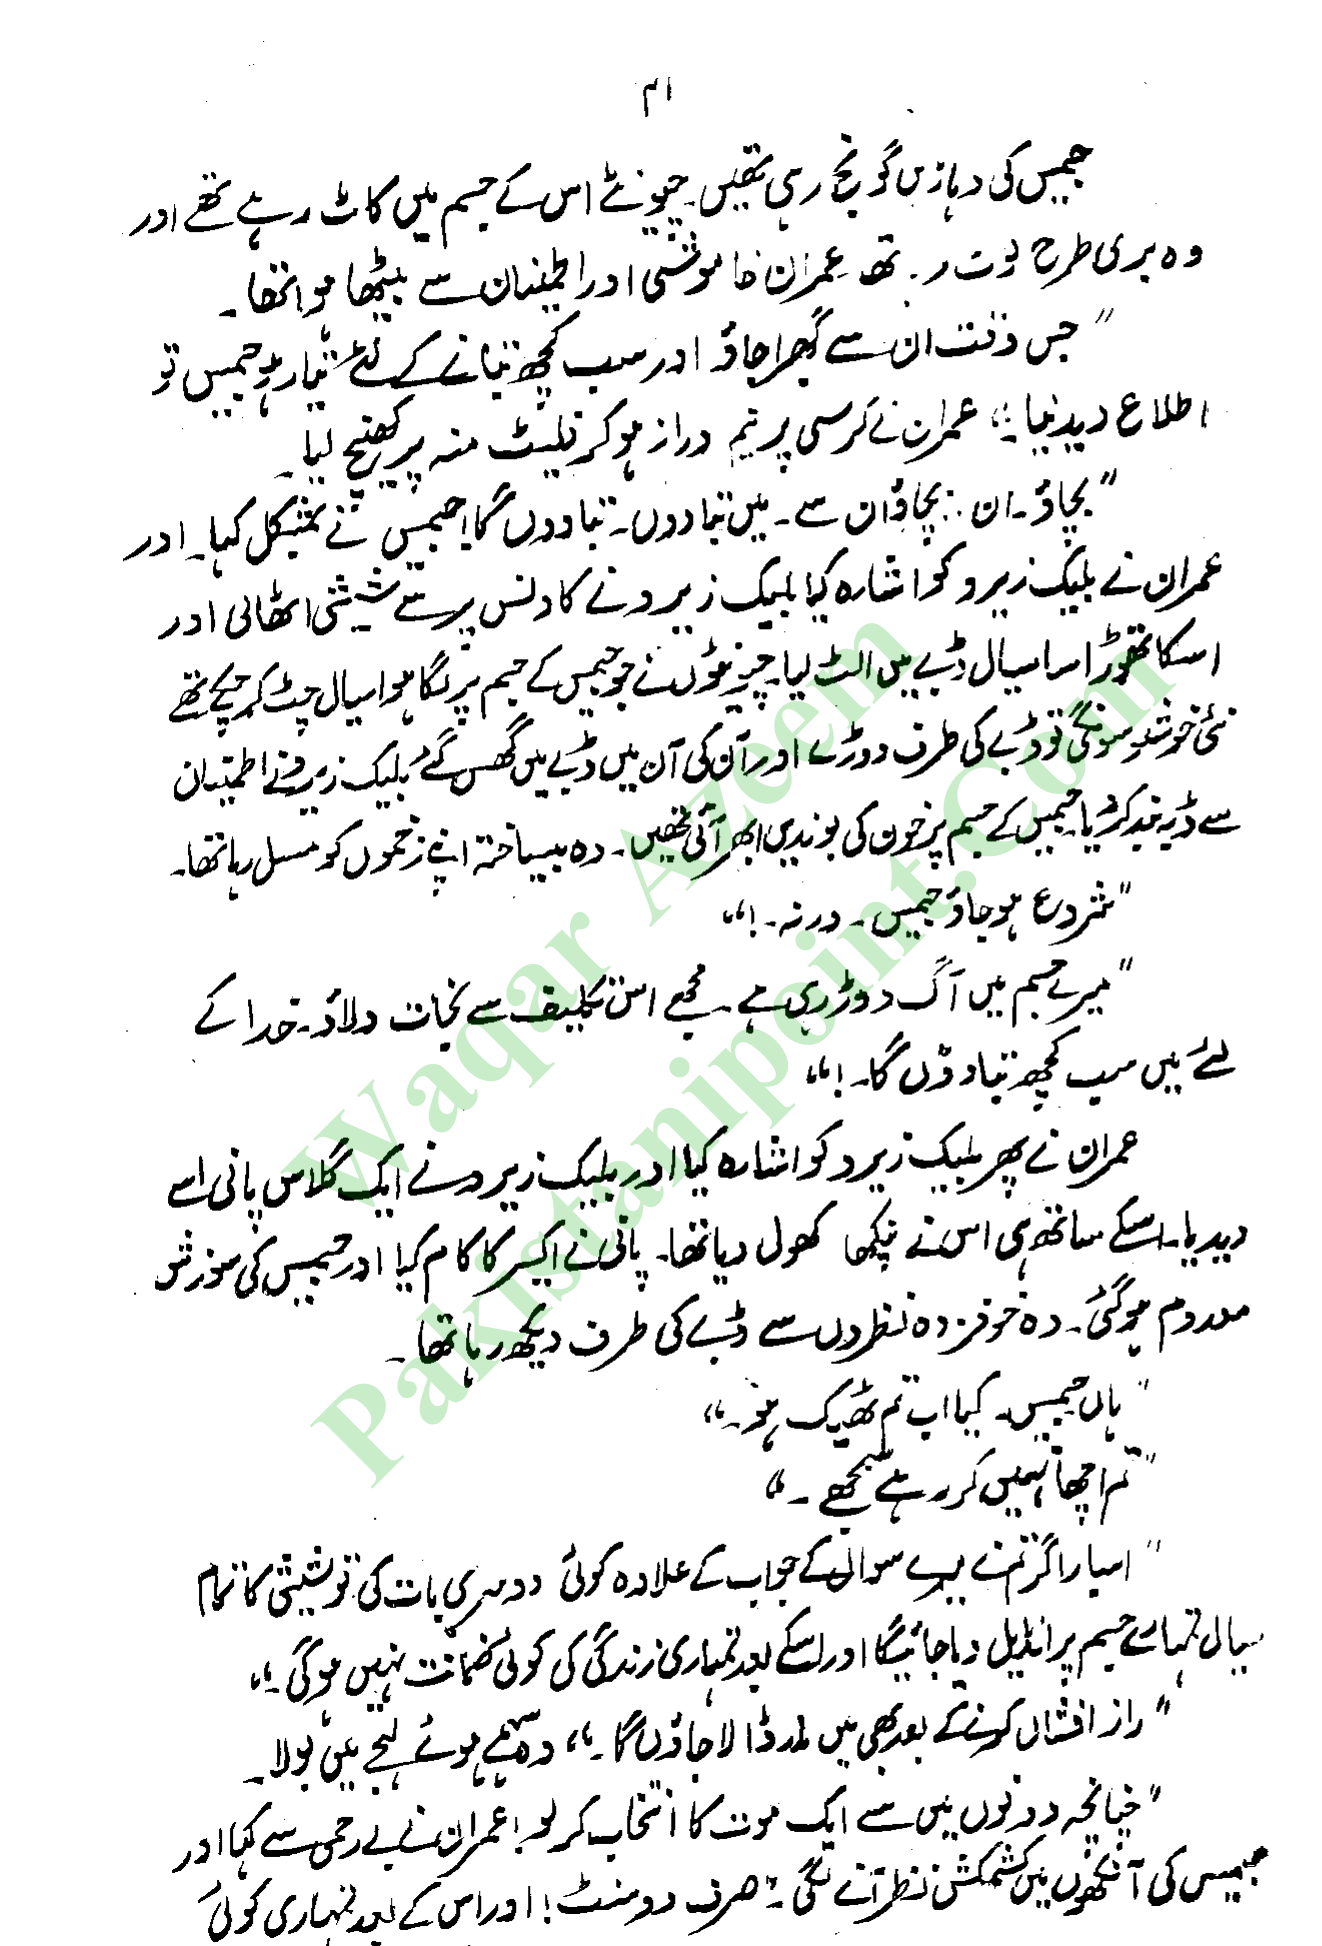 ۴۱
جیمس کی دہاڑیں گونج رہی تھیں۔ چیونٹے اس کے جسم میں کاٹ رہے تھے اور
وہ بری طرح لوٹ ر . تھا عمران خاموشی اور اطمینان سے بیٹھا ہوا تھا۔
"جس وقت ان سے گھبرا جاؤ اور سب کچھ بتانے کے لئے تیار ہو جیمس تو
اطلاع دیدینا۔" عمران نے کرسی پر نیم دراز ہو کر فلیٹ منہ پر کھینچ لیا۔
"بچاؤ۔ ان : بچاؤ ان سے۔ میں بتا دوں۔ بتا دوں گا! جیمس نے بمشکل کہا۔ اور
عمران نے بلیک زیرو کو اشارہ کیا بلیک زیرو نے کارنس پر سے شیشی اٹھالی اور
اسکا تھوڑا سا سیال ڈبے میں الٹ لیا۔ چیونٹوں نے جو جیمس کے جسم پر لگا ہوا سیال چٹ کر چکے تھے
نئی خوشبو سونگھی تو ڈبے کی طرف دوڑے اور آن کی آن میں ڈبے میں گھس گئے بلیک زیرو نے اطمینان
سے ڈبہ بند کر دیا۔ جیمس کے جسم پر خون کی بوندیں ابھر آئی تھیں۔ وہ بیساختہ اپنے زخموں کو مسل رہا تھا۔
"شروع ہو جاؤ جیمس۔ ورنہ۔!"
"میرے جسم میں آگ دوڑ رہی ہے۔ مجھے اس تکلیف سے نجات دلاؤ۔ خدا کے
لئے میں سب کچھ بتا دوں گا۔!"
عمران نے پھر بلیک زیرو کو اشارہ کیا اور بلیک زیرو نے ایک گلاس پانی اسے
دیدیا۔ اسکے ساتھ ہی اس نے پنکھا کھول دیا تھا۔ پانی نے اکسیر کا کام کیا اور جیمس کی سوزش
معدوم ہو گئی۔ وہ خوفزدہ نظروں سے ڈبے کی طرف دیکھ رہا تھا۔
"ہاں جیمس۔ کیا اب تم ٹھیک ہو۔"
"تم اچھا نہیں کر رہے سمجھے۔"
"اس بار اگر تم نے میرے سوال کے جواب کے علاوہ کوئی دوسری بات کی تو شیشی کا تمام
سیال تمہارے جسم پر انڈیل دیا جائیگا اور اسکے بعد تمہاری زندگی کی کوئی ضمانت نہیں ہو گی۔"
"راز افشاں کرنے کے بعد بھی میں مار ڈالا جاؤں گا۔" وہ سہمے ہوئے لہجے میں بولا۔
"چنانچہ دونوں میں سے ایک موت کا انتخاب کر لو! عمران نے بے رحمی سے کہا اور
جیمس کی آنکھوں میں کشمکش نظر آنے لگی۔ "صرف دو منٹ! اور اس کے بعد تمہاری کوئی
Waqar Azeem
Pakistanipoint.Com